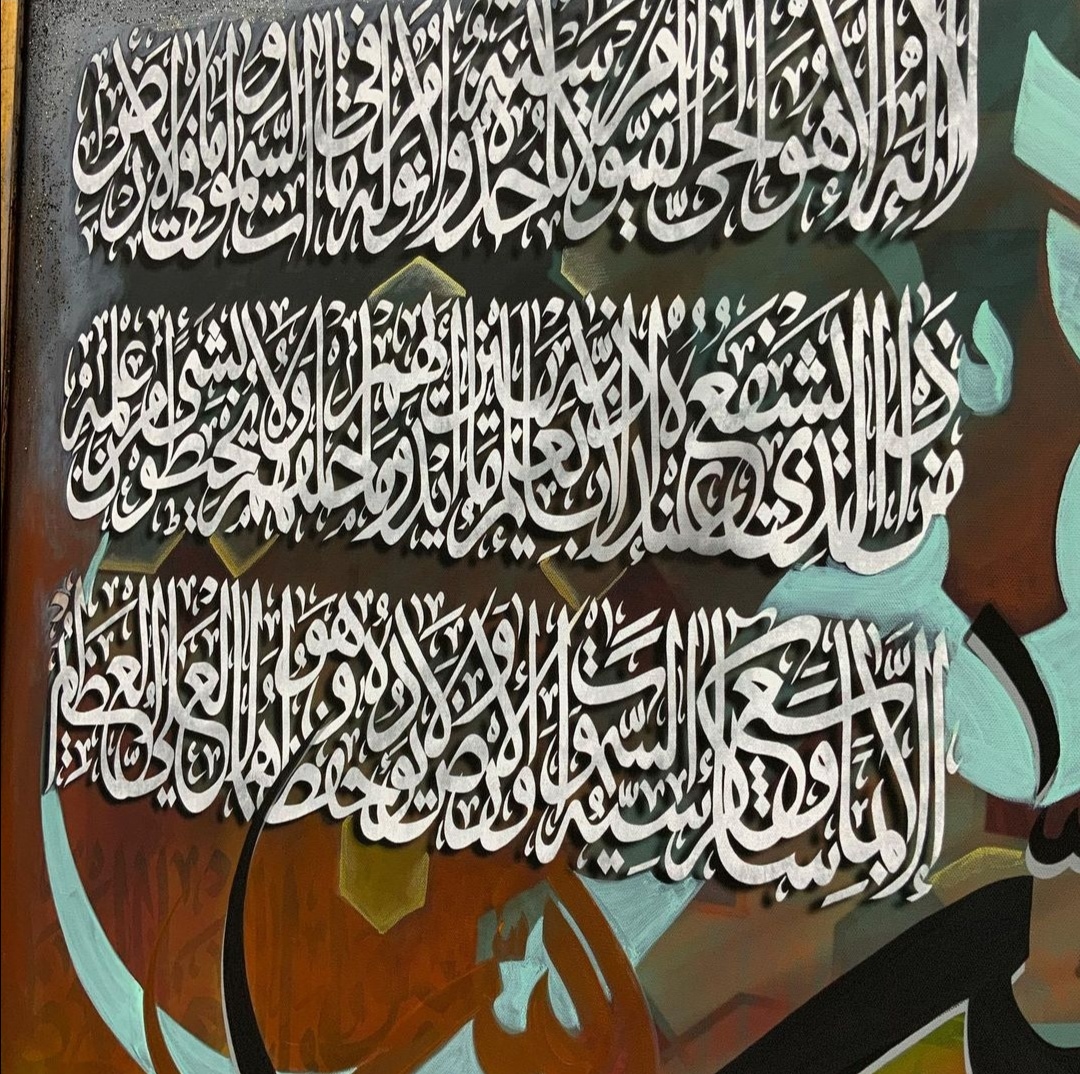 لَا إِلَهَ إِلَّا هُوَ الْحَيُّ الْقَيُّومُ لَا تَأْخُذُهُ سِنَةٌ وَلَا نَوْمٌ لَهُ مَا فِي السَّمٰوَاتِ وَمَا فِي الْأَرْضِ
مَنْ ذَا الَّذِي يَشْفَعُ عِنْدَهُ إِلَّا بِإِذْنِهِ يَعْلَمُ مَا بَيْنَ أَيْدِيهِمْ وَمَا خَلْفَهُمْ وَلَا يُحِيطُونَ بِشَيْءٍ مِنْ عِلْمِهِ
إِلَّا بِمَا شَاءَ وَسِعَ كُرْسِيُّهُ السَّمٰوَاتِ وَالْأَرْضَ وَلَا يَئُودُهُ حِفْظُهُمَا وَهُوَ الْعَلِيُّ الْعَظِيمُ